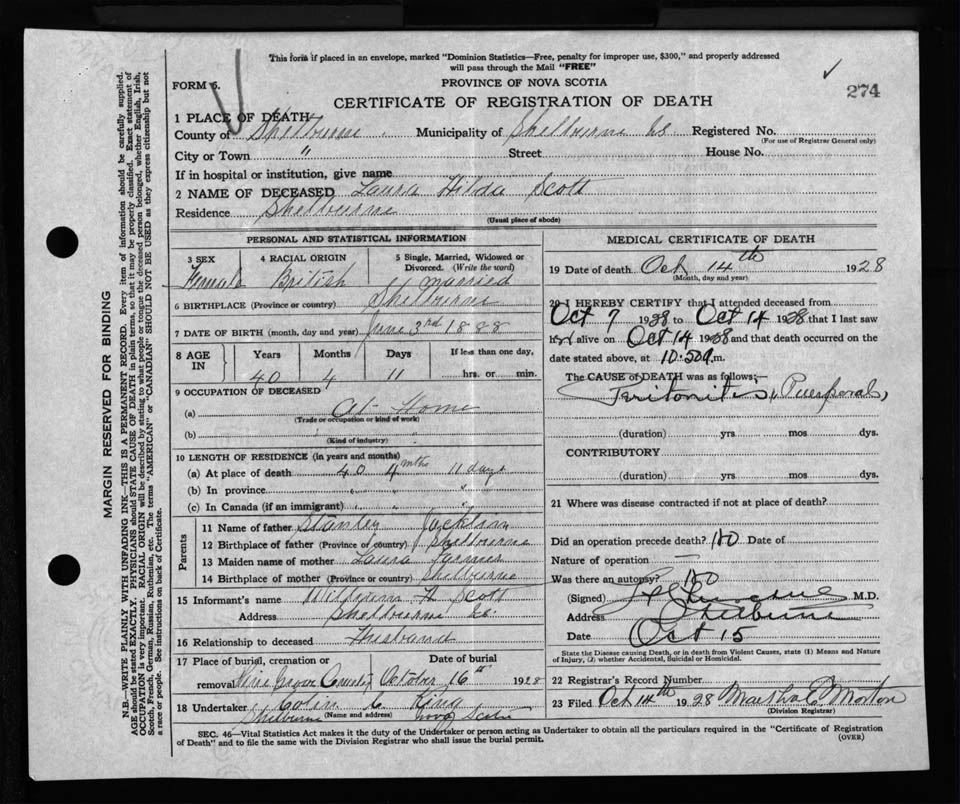 This form if placed in an envelope, marked "Dominion Statistics—Free, penalty for improper use, $300," and properly addressed
will pass through the Mail "FREE"
FORM 6.
PROVINCE OF NOVA SCOTIA
274
CERTIFICATE OF REGISTRATION OF DEATH
1 PLACE OF DEATH
County of Shelburne Municipality of Shelburne NS Registered No.
(For use of Registrar General only)
City or Town " Street House No.
If in hospital or institution, give name
2 NAME OF DECEASED Laura Hilda Scott
Residence Shelburne
(Usual place of abode)
PERSONAL AND STATISTICAL INFORMATION
3 SEX 4 RACIAL ORIGIN 5 Single, Married, Widowed or
Divorced. (Write the word)
Female British Married
6 BIRTHPLACE (Province or country) Shelburne
7 DATE OF BIRTH (month, day and year) June 3rd 1888
8 AGE IN Years Months Days If less than one day,
40 4 11 hrs. or min.
9 OCCUPATION OF DECEASED
(a) At Home
(Trade or occupation or kind of work)
(b)
(Kind of industry)
10 LENGTH OF RESIDENCE (in years and months)
(a) At place of death 40 4 mths 11 days
(b) In province " " "
(c) In Canada (if an immigrant) " " "
Parents
11 Name of father Stanley Jacklin
12 Birthplace of father (Province or country) Shelburne
13 Maiden name of mother Laura
14 Birthplace of mother (Province or country) Shelburne
15 Informant's name William H Scott
Address Shelburne NS.
16 Relationship to deceased Husband
17 Place of burial, cremation or removal Date of burial
Pine Grove Cemetery October 16th 1928
18 Undertaker Colin C King
(Name and address)
Shelburne Nova Scotia
MEDICAL CERTIFICATE OF DEATH
19 Date of death Oct 14th 1928
(Month, day and year)
20 I HEREBY CERTIFY that I attended deceased from
Oct 7 1928 to Oct 14 1928 that I last saw
her alive on Oct 14 1928 and that death occurred on the
date stated above, at 10.50 a.m.
The CAUSE of DEATH was as follows:—
Peritonitis, Puerperal,
(duration) yrs mos dys.
CONTRIBUTORY
(duration) yrs mos dys.
21 Where was disease contracted if not at place of death?
Did an operation precede death? No Date of
Nature of operation —
Was there an autopsy? No
(Signed) M.D.
Address Shelburne
Date Oct 15
State the Disease causing Death, or in death from Violent Causes, state (1) Means and Nature
of Injury, (2) whether Accidental, Suicidal or Homicidal.
22 Registrar's Record Number
23 Filed Oct 14th 1928 Marshal C. Morton
(Division Registrar)
SEC. 46—Vital Statistics Act makes it the duty of the Undertaker or person acting as Undertaker to obtain all the particulars required in the "Certificate of Registration
of Death" and to file the same with the Division Registrar who shall issue the burial permit.
(OVER)
MARGIN RESERVED FOR BINDING
N.B.—WRITE PLAINLY WITH UNFADING INK—THIS IS A PERMANENT RECORD. Every item of information should be carefully supplied.
AGE should be stated EXACTLY. PHYSICIANS should STATE CAUSE OF DEATH in plain terms, so that it may be properly classified. Exact statement of
OCCUPATION is very important. RACIAL ORIGIN will be described by stating to what people or tongue the deceased person belonged, whether English, Irish,
Scotch, French, German, Russian, Ruthenian, etc. The terms "AMERICAN" or "CANADIAN" SHOULD NOT BE USED as they express citizenship but not
a race or people. See instructions on back of Certificate.